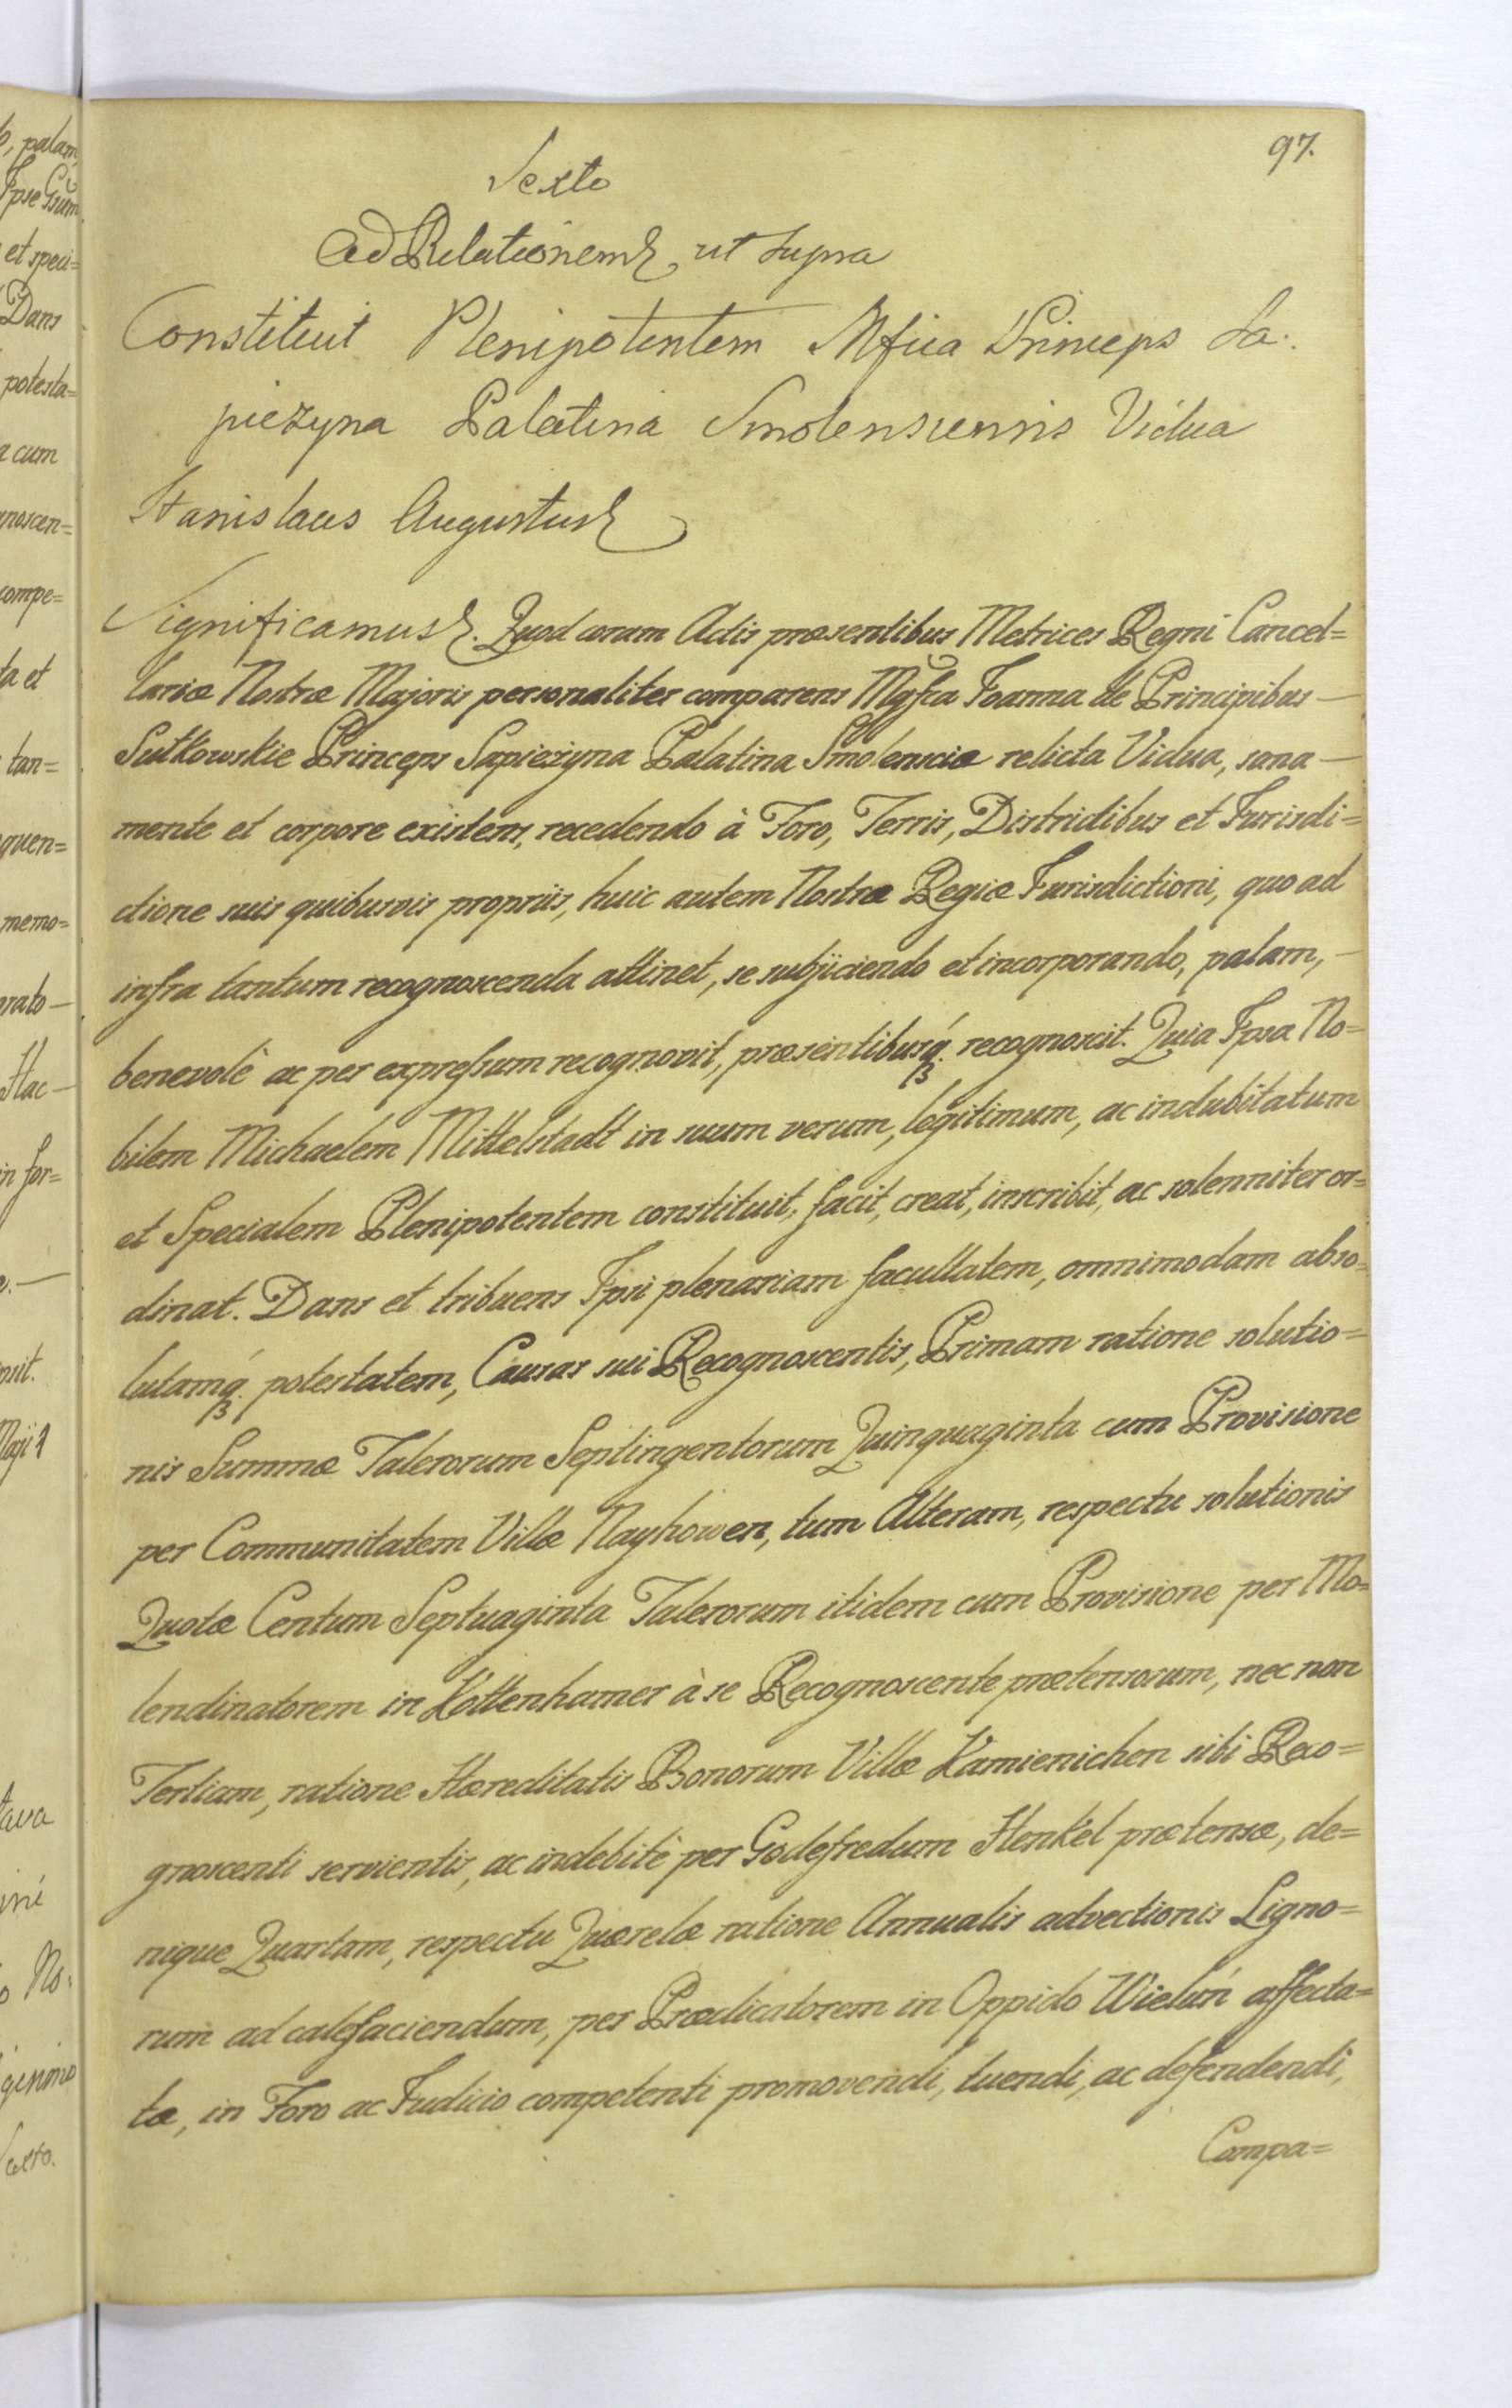 97.
Sexto
Ad Relationem ut supra
Constituit Plenipotentem Mfica Princeps Sa:
piezyna Palatina Smolenscensis Vidua
Stanislaus Augustus
Significamus. Quod coram Actis præsentibus Metrices Regni Cancel=
lariæ Nostræ Majoris personaliter comparens Mgfca Joanna de Principibus —
Sułkowskie Princeps Sapieżyna Palatina Smolensciæ relicta Vidua, sana —
mente et corpore existens, recedendo à Foro, Terris, Districtibus et Jurisdi=
ctione suis quibusvis propriis, huic autem Nostræ Regiæ Jurisdictioni, quo ad
infra tantum recognoscenda attinet, se subjiciendo et incorporando, palam, —
benevolè ac per expressum recognovit, præsentibusq́ recognoscit. Quia Ipsa No=
bilem Michaelem Mittelstadt in suum verum, legitimum, ac indubitatum
et Specialem Plenipotentem constituit, facit, creat, inscribit, ac solenniter or=
dinat. Dans et tribuens Ipsi plenariam facultatem, omnimodam abso=
lutamq́ potestatem, Causas sui Recognoscentis, Primam ratione solutio=
nis Summæ Talerorum Septingentorum Quinquaginta cum Provisione
per Communitatem Villæ Nayhowen, tum Alteram, respectu solutionis
Quotæ Centum Septuaginta Talerorum itidem cum Provisione per Mo=
lendinatorem in Kottenhamer à se Recognoscente prætensorum, nec non
Tertiam, ratione Hæreditatis Bonorum Villæ Kamienichen sibi Reco=
gnoscenti servientis, ac indebitè per Godefredum Henkel prætensæ, de=
nique Quartam, respectu Quærelæ ratione Annualis advectionis Ligno=
rum ad calefaciendum, per Prædicatorem in Oppido Wieluń affecta=
tæ, in Foro ac Judicio competenti promovendi, tuendi, ac defendendi,
Compa=